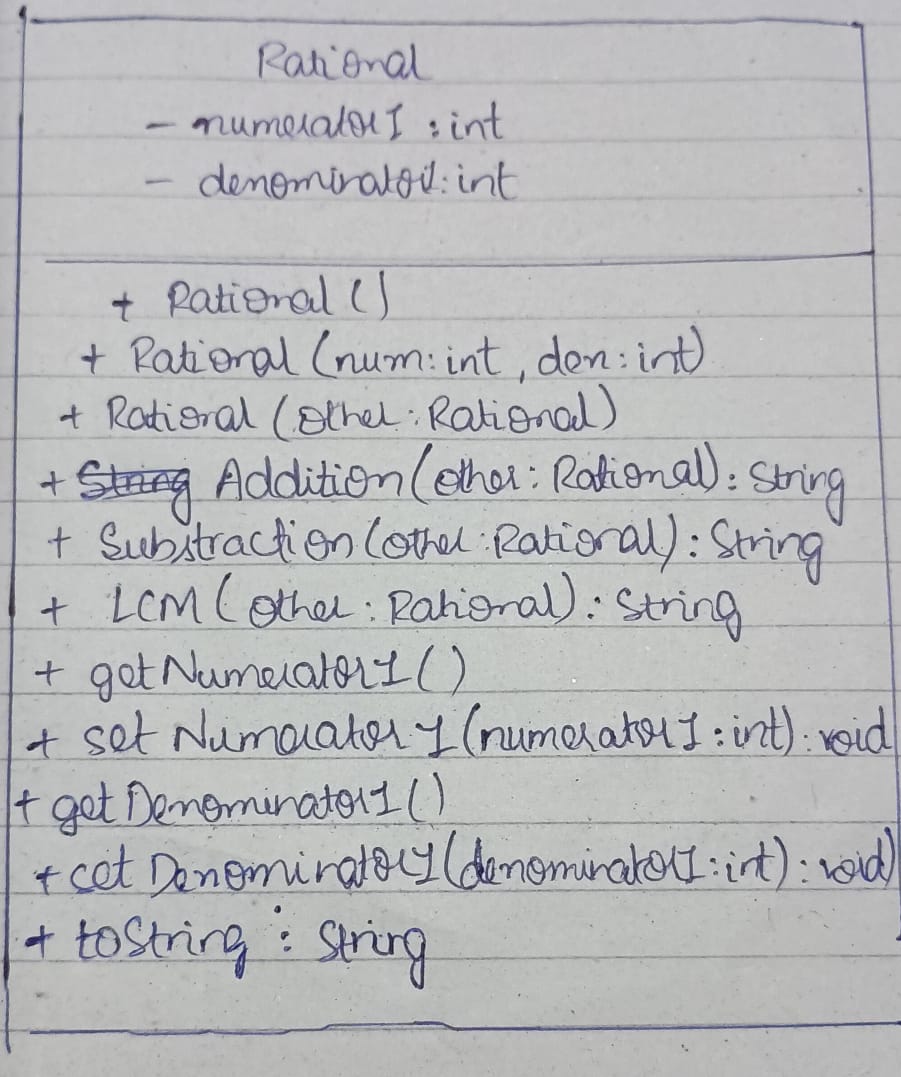 Rational
- numerator1 : int
- denominator1: int
+ Rational ()
+ Rational (num: int, den: int)
+ Rational (other: Rational)
+ String Addition (other: Rational): String
+ Substraction (other: Rational): String
+ LCM (other: Rational): String
+ getNumerator1()
+ set Numerator1 (numerator1: int): void
+ getDenominator1()
+ set Denominator1 (denominator1: int): void)
+ toString : String